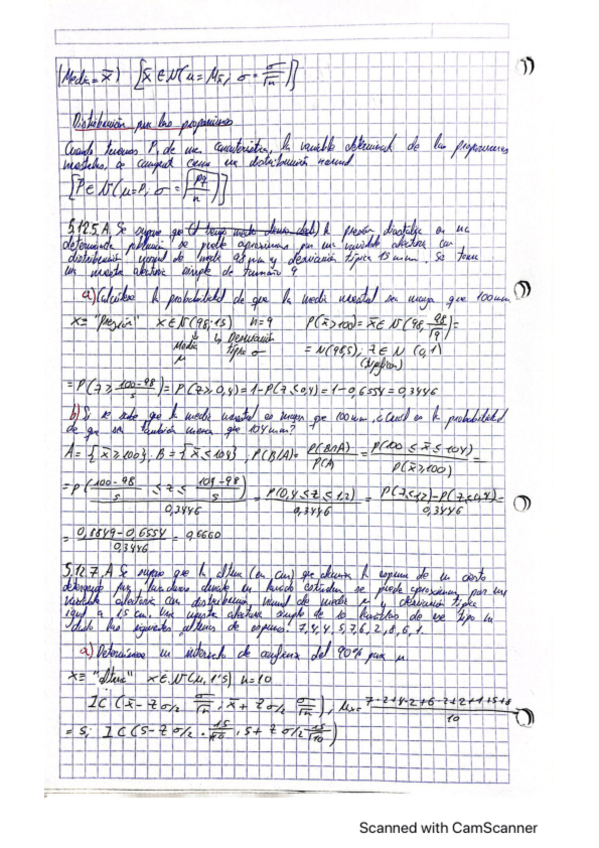 (Media = x̄) [x̄ ∈ N(μ = Mx̄, σ = σ/√n)]
Distribución por las proporciones
Cuando tenemos P, de una característica, la variable de las proporciones
muestrales, se como una distribución normal
[P̂ ∈ N(μ=P, σ = √(pq/n))]
5.12.5.A. Se supone que la presión diastólica en una
determinada población se puede aproximar por una variable aleatoria con
distribución normal de media 98 mm y desviación típica 15 mm. Se toma
una muestra aleatoria simple de tamaño 9
a) Calcúlese la probabilidad de que la media muestral sea mayor que 100 mm
x ≡ "Presión" x ∈ N(98, 15) n=9 P(x̄ ≥ 100) = x̄ ∈ N(98, 98/√9) =
Media μ Desviación típica σ = N(98,5), z ∈ N (0,1)
(tipificar)
= P(z ≥ (100-98)/5) = P(z ≥ 0,4) = 1-P(z ≤ 0,4) = 1-0,6554 = 0,3446
b) Si se sabe que la media muestral es mayor que 100 mm, ¿Cuál es la probabilidad
de que sea también menor que 104 mm?
A = {x̄ ≥ 100}. B = {x̄ ≤ 104}, P(B/A) = P(B∩A)/P(A) = P(100 ≤ x̄ ≤ 104)/P(x̄ ≥ 100) =
= P((100-98)/5 ≤ z ≤ (104-98)/5)/0,3446 = P(0,4 ≤ z ≤ 1,2)/0,3446 = P(z ≤ 1,2)-P(z ≤ 0,4)/0,3446 =
= (0,8849-0,6554)/0,3446 = 0,6660
5.12.7.A Se supone que la altura (en cm) que alcanza la espuma de un cierto
detergente para lavadoras durante un lavado estándar se puede aproximar por una
variable aleatoria con distribución normal de media μ y desviación típica
igual a 1,5 cm. Una muestra aleatoria simple de 10 lavados de ese tipo ha
dado las siguientes alturas de espuma: 7, 4, 4, 5, 7, 6, 2, 8, 6, 1.
a) Determínese un intervalo de confianza del 90% para μ.
x ≡ "altura" x ∈ N(μ, 1'5) n=10
IC (x̄ - Z α/2 σ/√n, x̄ + Z α/2 σ/√n),
= 5; IC (5 - Z α/2 · 1,5/√10, 5 + Z α/2 1,5/√10)
Scanned with CamScanner